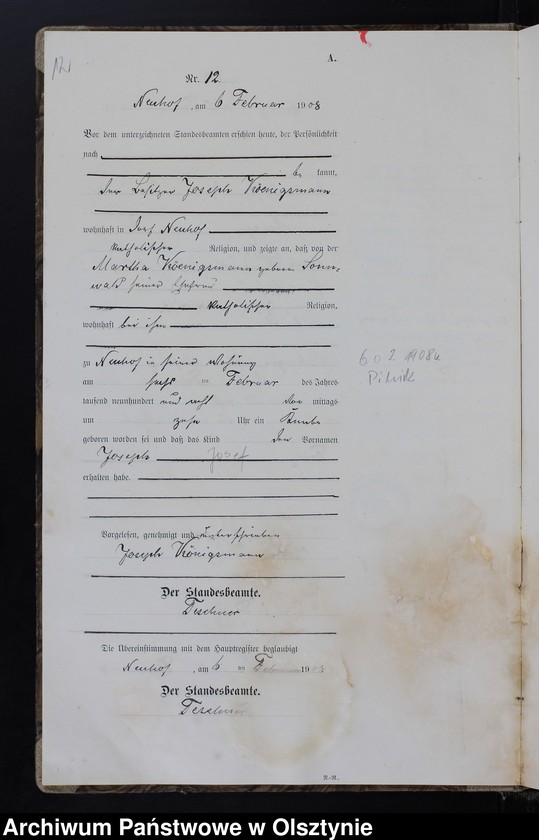 12
A.
Nr. 12
Neuhof, am 6 Februar 1908
Vor dem unterzeichneten Standesbeamten erschien heute, der Persönlichkeit
nach
be kannt,
der Besitzer Joseph Koenigsmann
wohnhaft in Dorf Neuhof
katholischer Religion, und zeigte an, daß von der
Martha Koenigsmann geborne Sonn-
wald seiner Ehefrau
katholischer Religion,
wohnhaft bei ihm
zu Neuhof in seiner Wohnung
am sechs ten Februar des Jahres
tausend neunhundert und acht vor mittags
um zehn Uhr ein Knabe
geboren worden sei und daß das Kind den Vornamen
Joseph Josef
erhalten habe.
Vorgelesen, genehmigt und unterschrieben
Joseph Königsmann
Der Standesbeamte.
Teschner
Die Übereinstimmung mit dem Hauptregister beglaubigt
Neuhof, am 6 ten Februar 1908
Der Standesbeamte.
Teschner
Archiwum Państwowe w Olsztynie